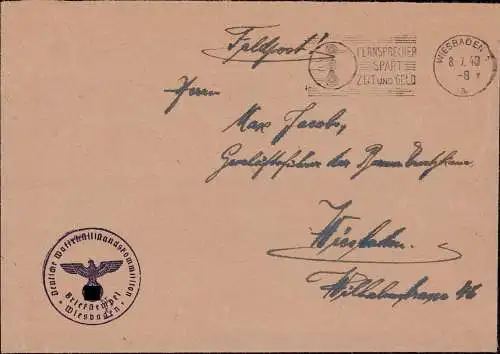 Feldpost!
FERNSPRECHER
SPART
ZEIT UND GELD
WIESBADEN
8.7.40
-8
a
Herrn
Max Jacobs,
Geschäftsführer der
Wiesbaden.
Wilhelmstrasse 46
Deutsche Waffenstillstandskommission
Briefstempel
Wiesbaden